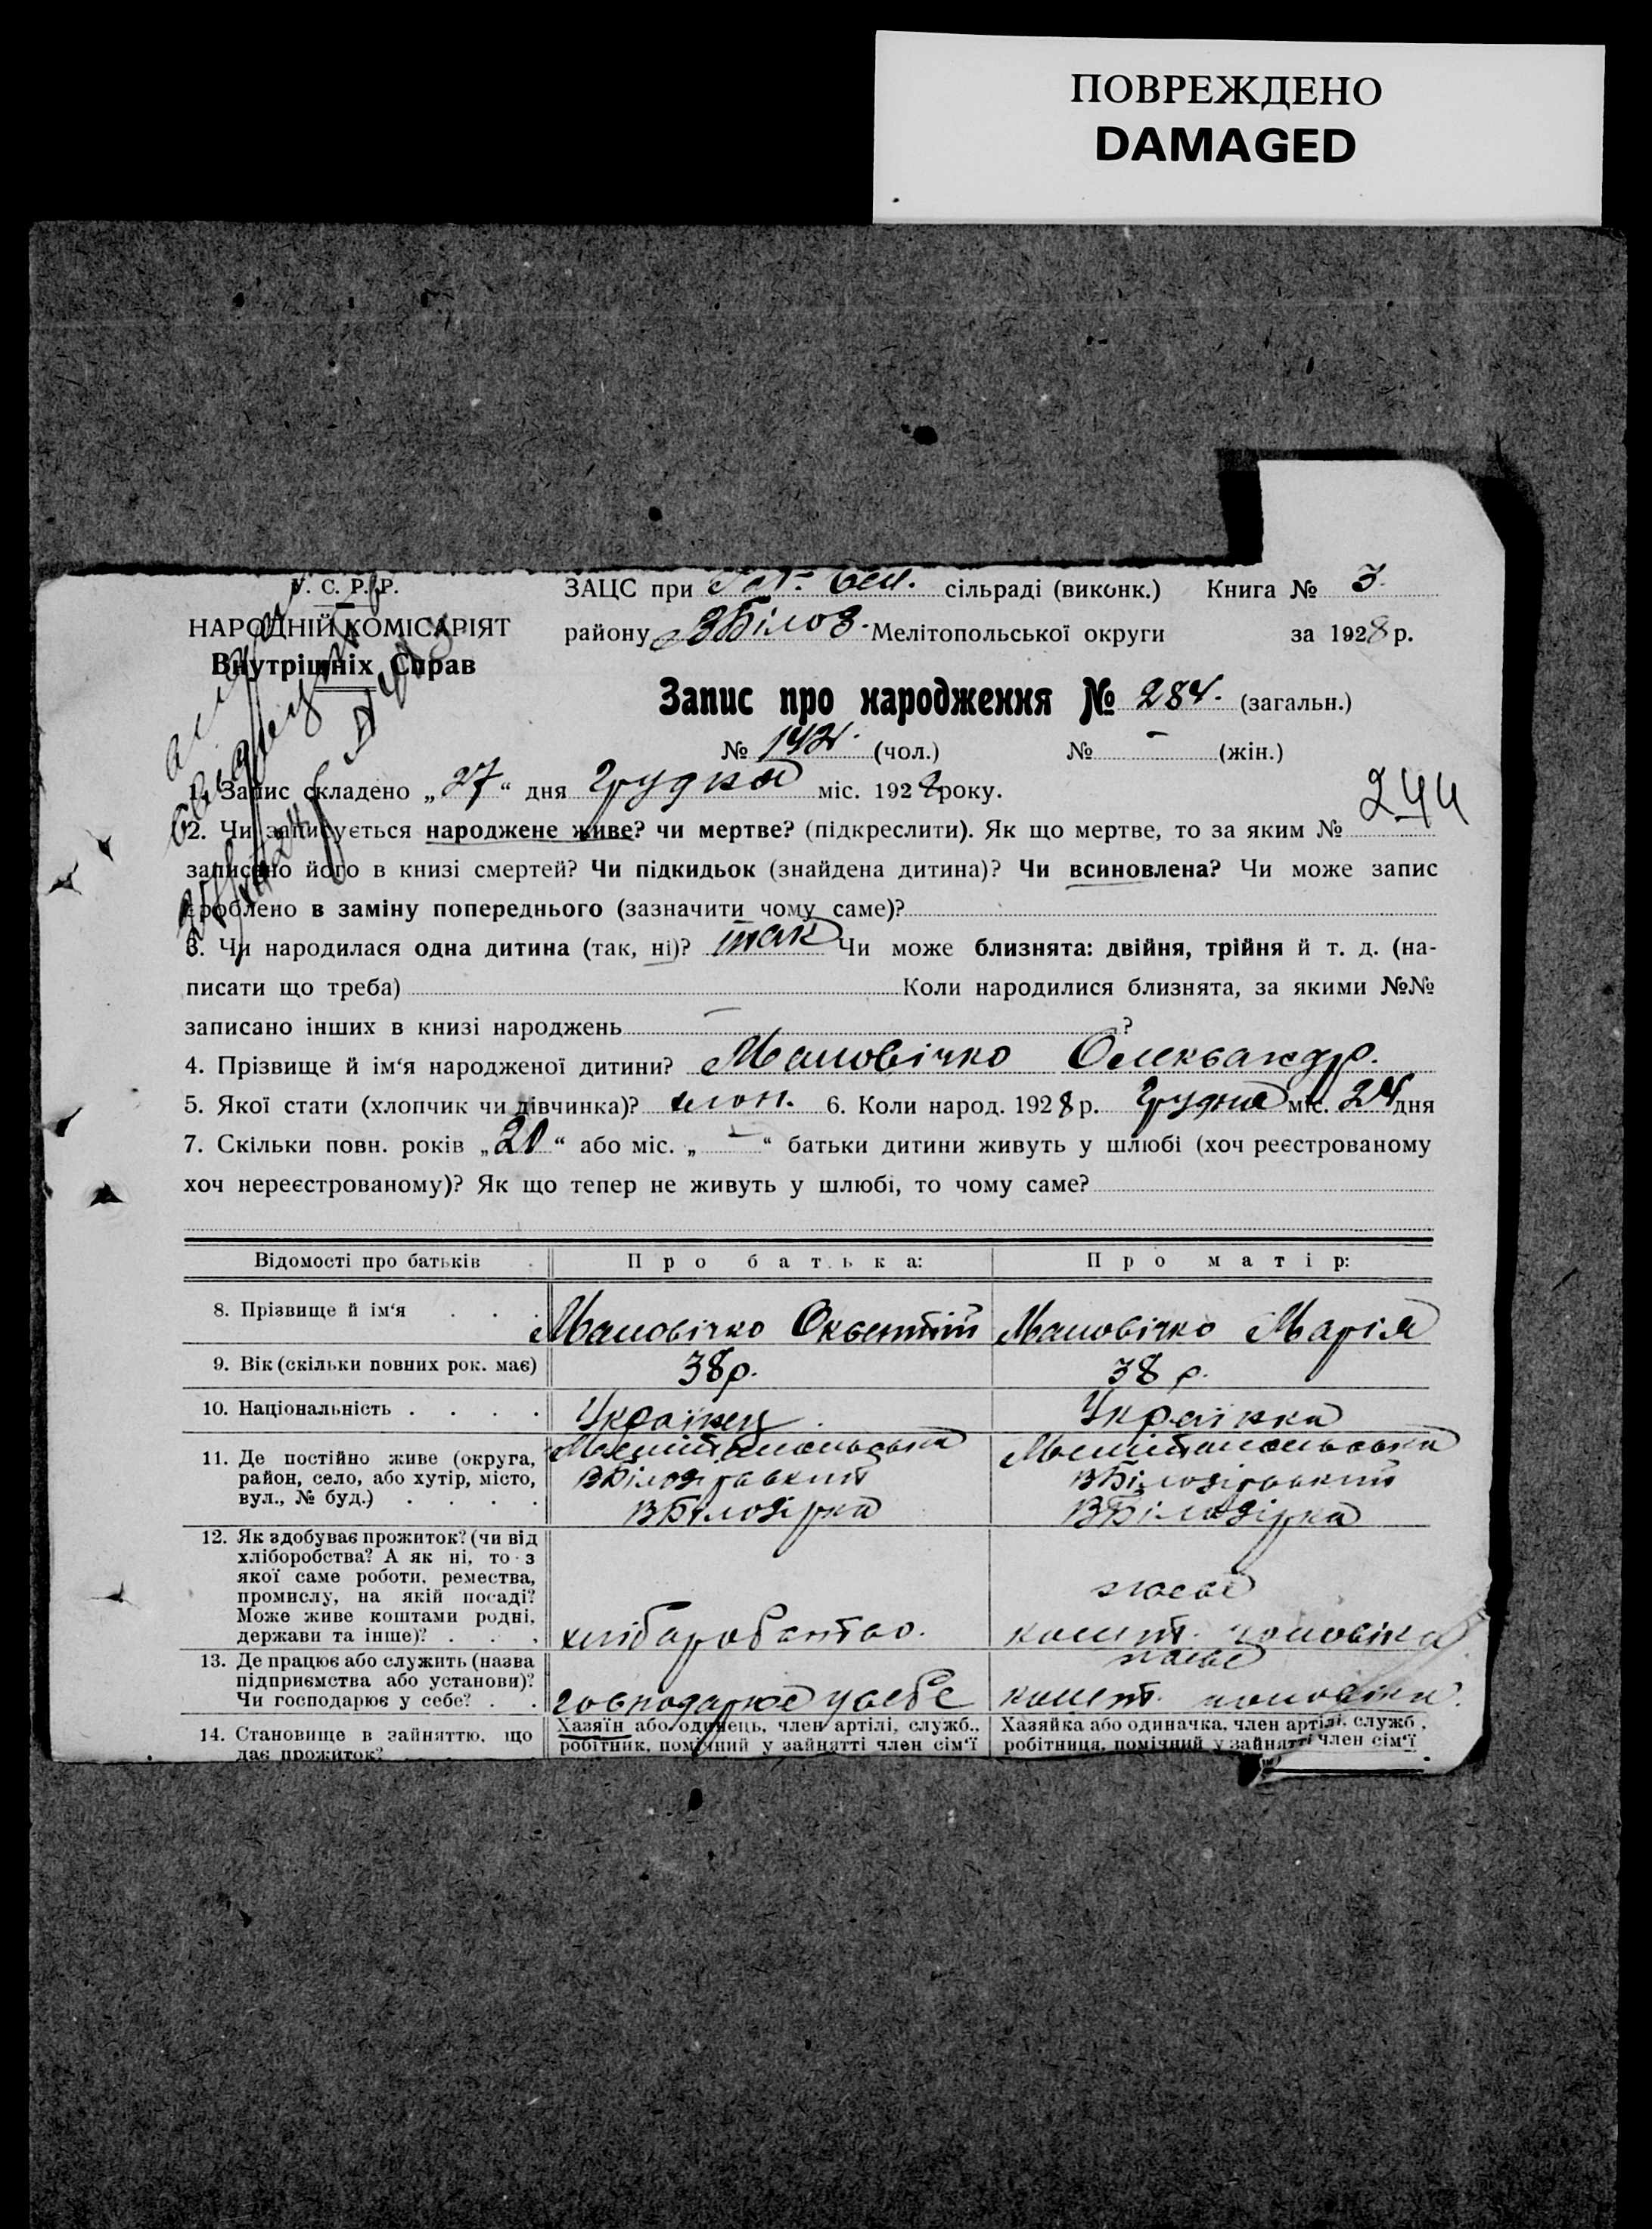 ПОВРЕЖДЕНО
DAMAGED
У. С. Р. Р.
НАРОДНІЙ КОМІСАРІЯТ
Внутрішніх Справ
ЗАЦС при сільраді (виконк.) Книга № 3
району ВБілоз. Мелітопольської округи за 1928 р.
Запис про народження № 284. (загальн.)
№ 142. (чол.) № - (жін.)
1. Запис складено „27“ дня Грудня міс. 1928 року.
244
2. Чи записується народжене живе? чи мертве? (підкреслити). Як що мертве, то за яким №
записано його в книзі смертей? Чи підкидьок (знайдена дитина)? Чи всиновлена? Чи може запис
зроблено в заміну попереднього (зазначити чому саме)?
3. Чи народилася одна дитина (так, ні)? так Чи може близнята: двійня, трійня й т. д. (на-
писати що треба) Коли народилися близнята, за якими №№
записано інших в книзі народжень ?
4. Прізвище й ім‘я народженої дитини? Маловічко Олександр.
5. Якої стати (хлопчик чи дівчинка)? хлоп. 6. Коли народ. 1928 р. Грудня міс. 24 дня
7. Скільки повн. років „20“ або міс. „-“ батьки дитини живуть у шлюбі (хоч реєстрованому
хоч нереєстрованому)? Як що тепер не живуть у шлюбі, то чому саме?
Відомості про батьків Про батька: Про матір:
8. Прізвище й ім‘я Маловічко Оксентій Маловічко Марія
9. Вік (скільки повних рок. має) 38 р. 38 р.
10. Національність Українец Українка
11. Де постійно живе (округа, Мелітопольська Мелітопольська
район, село, або хутір, місто, ВБілозірський ВБілозірський
вул., № буд.) ВБілозірка ВБілозірка
12. Як здобуває прожиток? (чи від
хліборобства? А як ні, то з
якої саме роботи, ремества,
промислу, на якій посаді?
Може живе коштами родні,
держави та інше)? хліборобство. кошт. чоловіка
13. Де працює або служить (назва
підприємства або установи)?
Чи господарює у себе? господарює у себе кошт. чоловіка.
14. Становище в зайняттю, що Хазяїн або одинець, член артілі, служб., Хазяйка або одиначка, член артілі, служб.,
дає прожиток? робітник, помічний у зайнятті член сім‘ї робітниця, помічний у зайнятті член сім‘ї